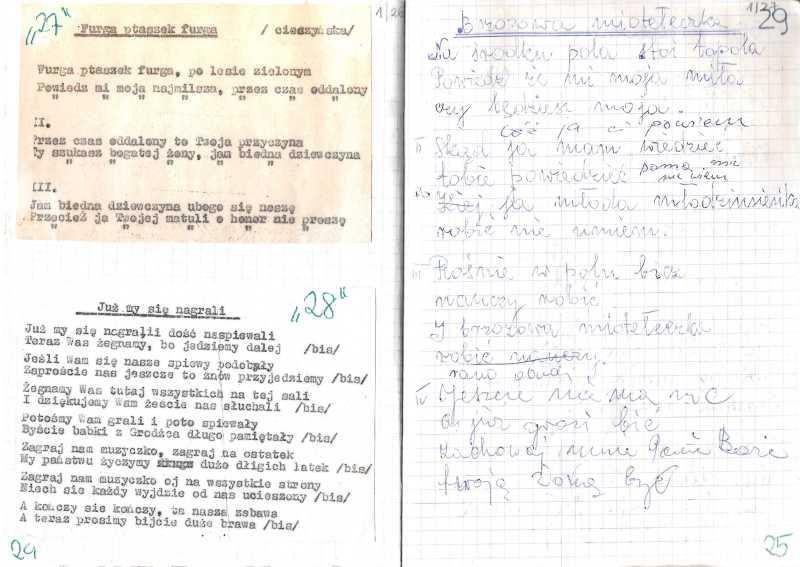 "27"
Furga ptaszek furga / cieszyńska/
1/26
Furga ptaszek furga, po lesie zielonym
Powiedz mi moja najmilsza, przez czas oddalony
" " " " " "
II.
Przez czas oddalony to Twoja przyczyna
Ty szukasz bogatej żony, jam biedna dziewczyna
" " " " " "
III.
Jam biedna dziewczyna ubogo się noszę
Przecież ja Twojej matuli o honor nie proszę
" " " " " "
Już my się nagrali
"28"
Już my się nagralii dość naspiewali
Teraz Was żegnamy, bo jedziemy dalej /bis/
Jeżli Wam się nasze spiewy podobały
Zaproście nas jeszcze to znów przyjedziemy /bis/
Żegnamy Was tutaj wszystkich na tej sali
I dziękujemy Wam żeście nas słuchali /bis/
Potośmy Wam grali i poto spiewały
Byście babki z Grodźca długo pamiętały /bis/
Zagraj nam muzyczko, zagraj na ostatek
My państwu życzymy dużo dłigich latek /bis/
Zagraj nam muzyczko oj na wszystkie strony
Niech sie każdy wyjdzie od nas ucieszony /bis/
A kończy sie kończy, ta nasza zabawa
A teraz prosimy bijcie duże brawa /bis/
24
1/27
29
Brzozowa miotełeczka
Na środku pola stoi topola
Powiedz że mi moja miła
czy będziesz moja.
Cóż ja ci powiem
II Skąd ja mam wiedzieć
tobie powiedzieć sama nic nie wiem
ja młoda młodziusieńka
robić nie umiem.
III Rośnie w polu bicz
nauczy robić
I brzozowa miotełeczka
robić
rano
IV Jeszcze nie ma nic
a już grozi bić
zachowaj mnie Panie Boże
twoją żoną być
25